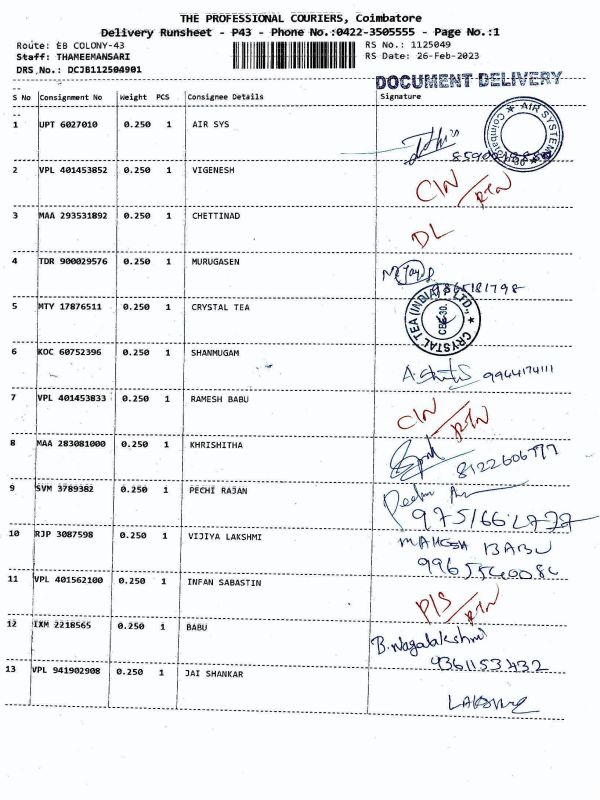 THE PROFESSIONAL COURIERS, Coimbatore
Delivery Runsheet - P43 - Phone No.:0422-3505555 - Page No.:1
Route: EB COLONY-43 RS No.: 1125049
Staff: THAMEEMANSARI RS Date: 26-Feb-2023
DRS No.: DCJB112504901
DOCUMENT DELIVERY
S No Consignment No Weight PCS Consignee Details Signature
1 UPT 6027010 0.250 1 AIR SYS
AIR SYSTEM
2 VPL 401453852 0.250 1 VIGENESH C/N/RTN
3 MAA 293531892 0.250 1 CHETTINAD DL
4 TDR 900029576 0.250 1 MURUGASEN
5 MTY 17876511 0.250 1 CRYSTAL TEA CRYSTAL TEA (INDIA) P LTD., CBE-30.
6 KOC 60752396 0.250 1 SHANMUGAM 9944174111
7 VPL 401453833 0.250 1 RAMESH BABU C/N/RTN
8 MAA 283081000 0.250 1 KHRISHITHA
9 SVM 3789382 0.250 1 PECHI RAJAN
10 RJP 3087598 0.250 1 VIJIYA LAKSHMI MAHESH BABU
11 VPL 401562100 0.250 1 INFAN SABASTIN P/S/RTN
12 IXM 2218565 0.250 1 BABU B. Nagalakshmi
9361153432
13 VPL 941902908 0.250 1 JAI SHANKAR